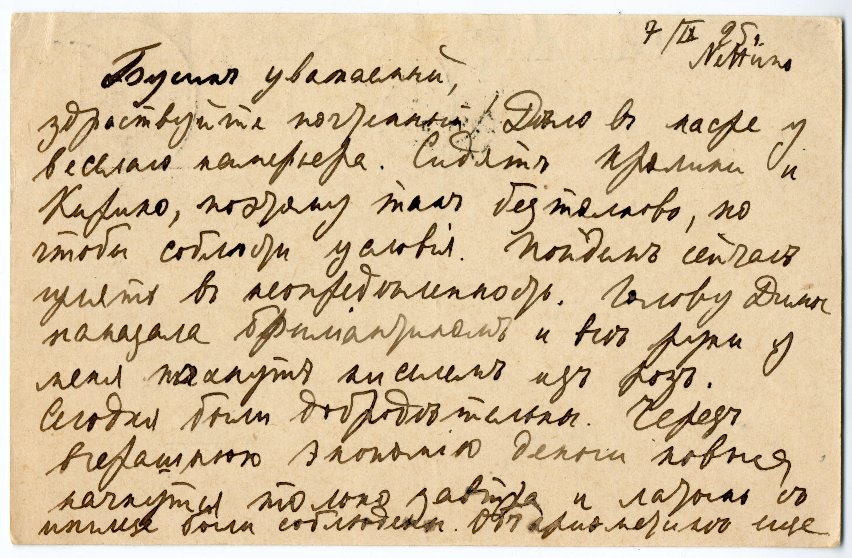 7/II 95.
Nettuno
уважаемый,
здраствуйте почтенный! Дѣло въ кафе у
веселаго камерьера. Сидятъ и
поэтому такъ бестолково, но
чтобы соблюсти условія. Пойдемъ сейчасъ
гулять въ неопредѣленность. Голову Дины
намазала брильянтиномъ и всѣ руки у
меня пахнутъ киселемъ изъ розъ.
Сегодня были добродѣтельны. Черезъ
вчерашнюю экономію деньги новыя
начнутся только завтра и
были соблюдены. еще